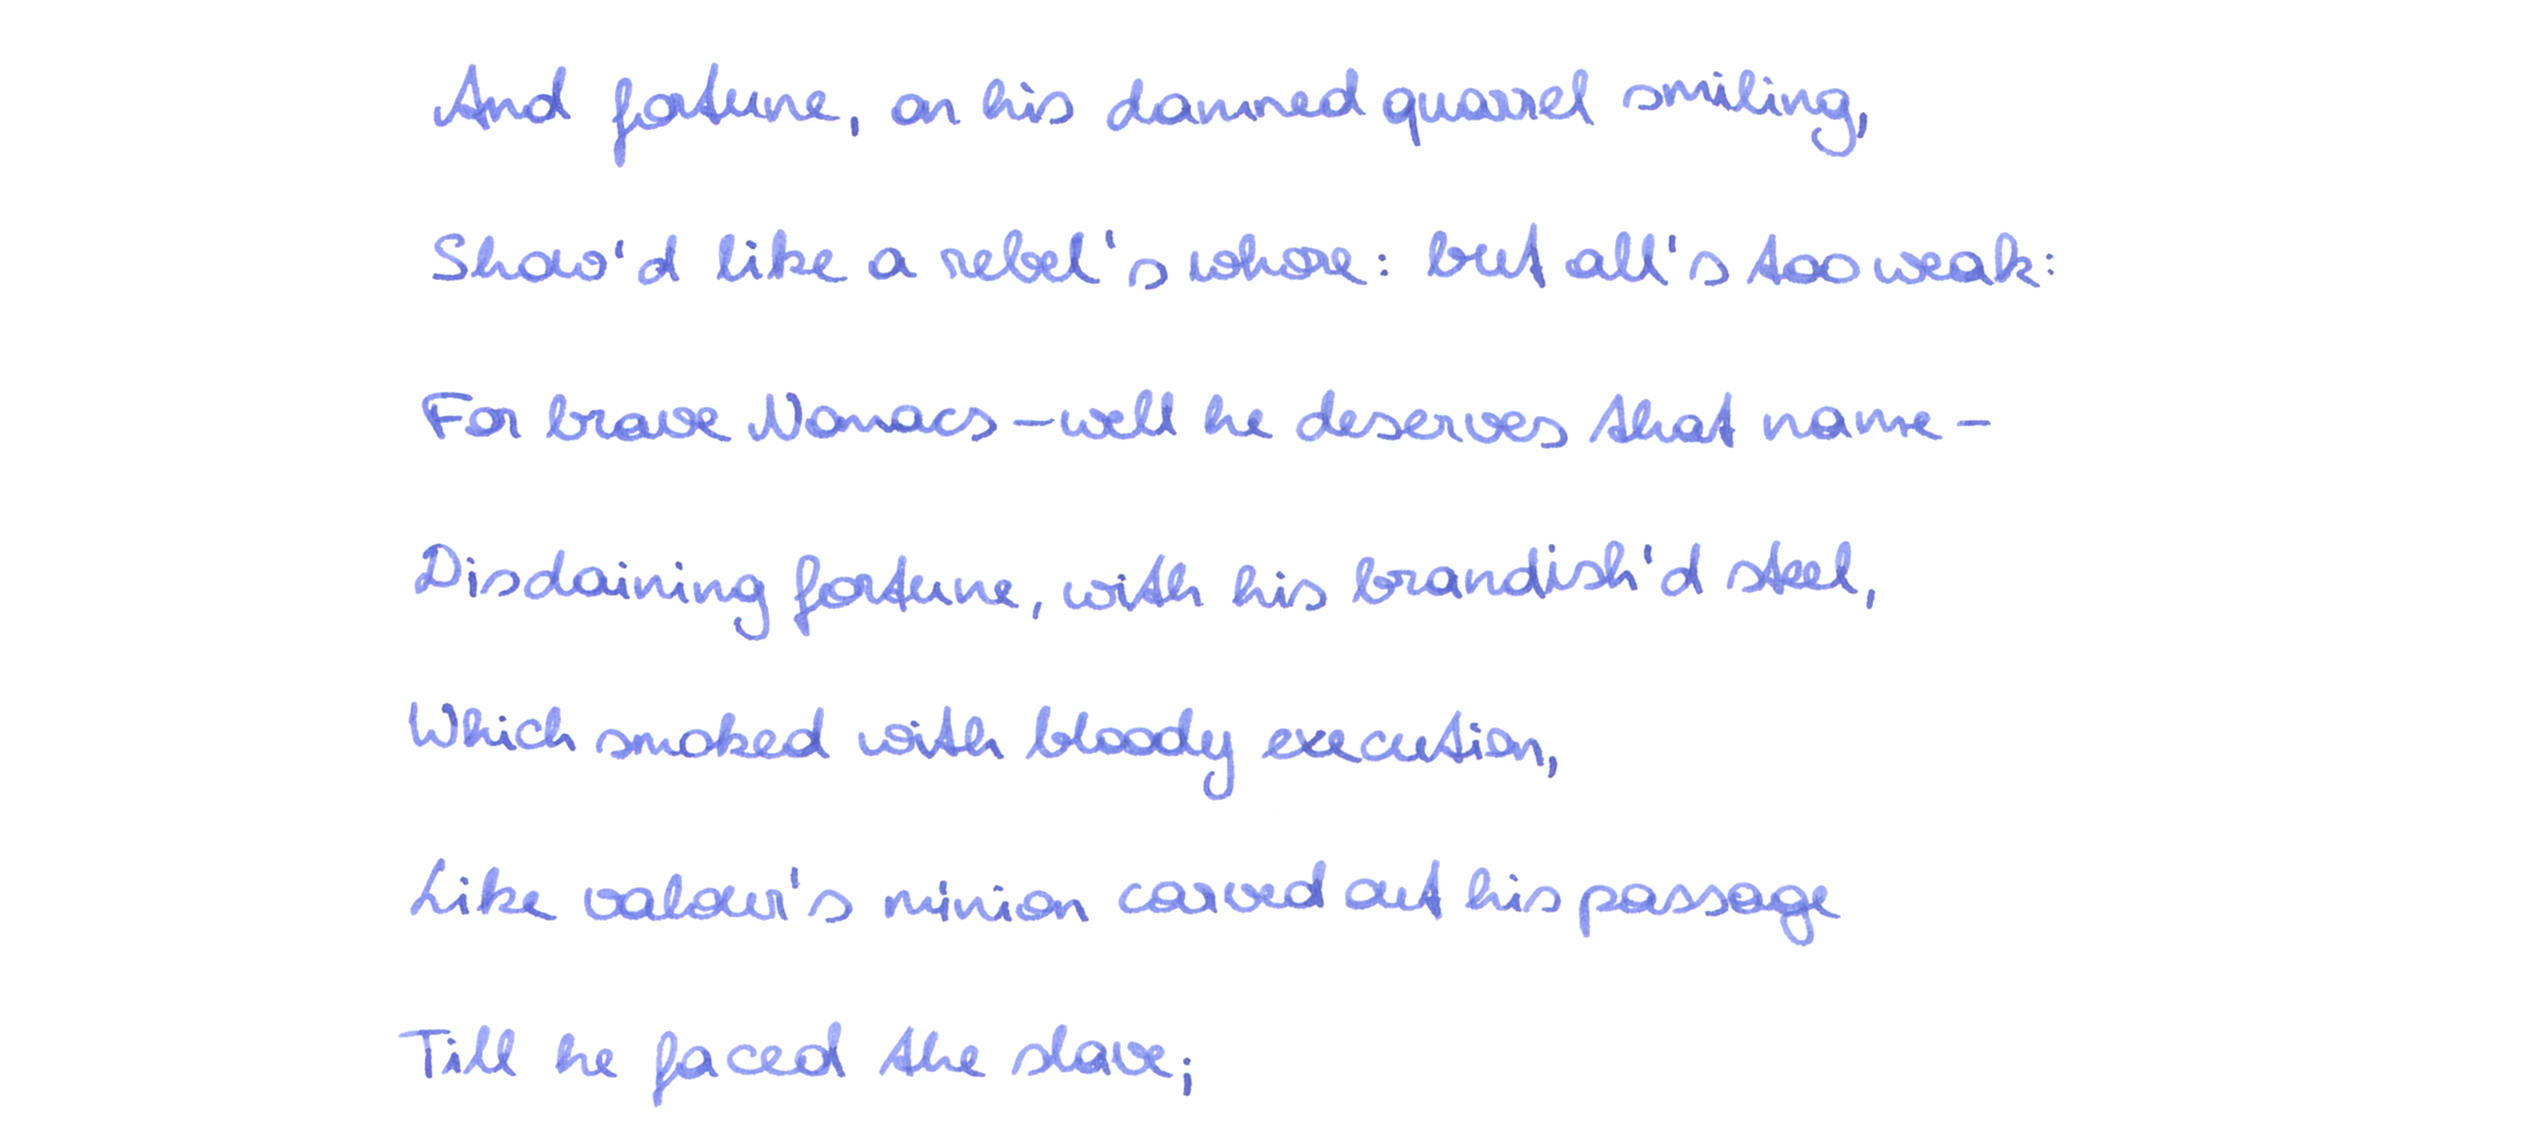 And fortune, on his damned quarrel smiling,
Show'd like a rebel's whore: but all's too weak:
For brave Nomacs -well he deserves that name-
Disdaining fortune, with his brandish'd steel,
Which smoked with bloody execution,
Like valour's minion carved out his passage
Till he faced the slave;